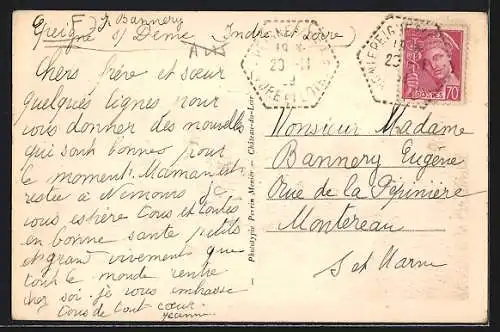 F) J. Bannery
Epeigné s/ Dême (Indre et Loire)
Chers frère et sœur
quelques lignes pour
vous donner des nouvelles
qui sont bonnes pour
le moment. Maman est
restée à Nemours je
vous espère tous et toutes
en bonne santé petits
et grand vivement que
tout le monde rentre
chez soi je vous embrasse
tous de tout cœur.
Jeanne
Phototypie Perrin Mercier — Château-du-Loir
20 - 11
INDRE ET LOIRE
20 - 11
POSTES 70
Monsieur Madame
Bannery Eugène
rue de la Pépinière
Montereau
S et Marne